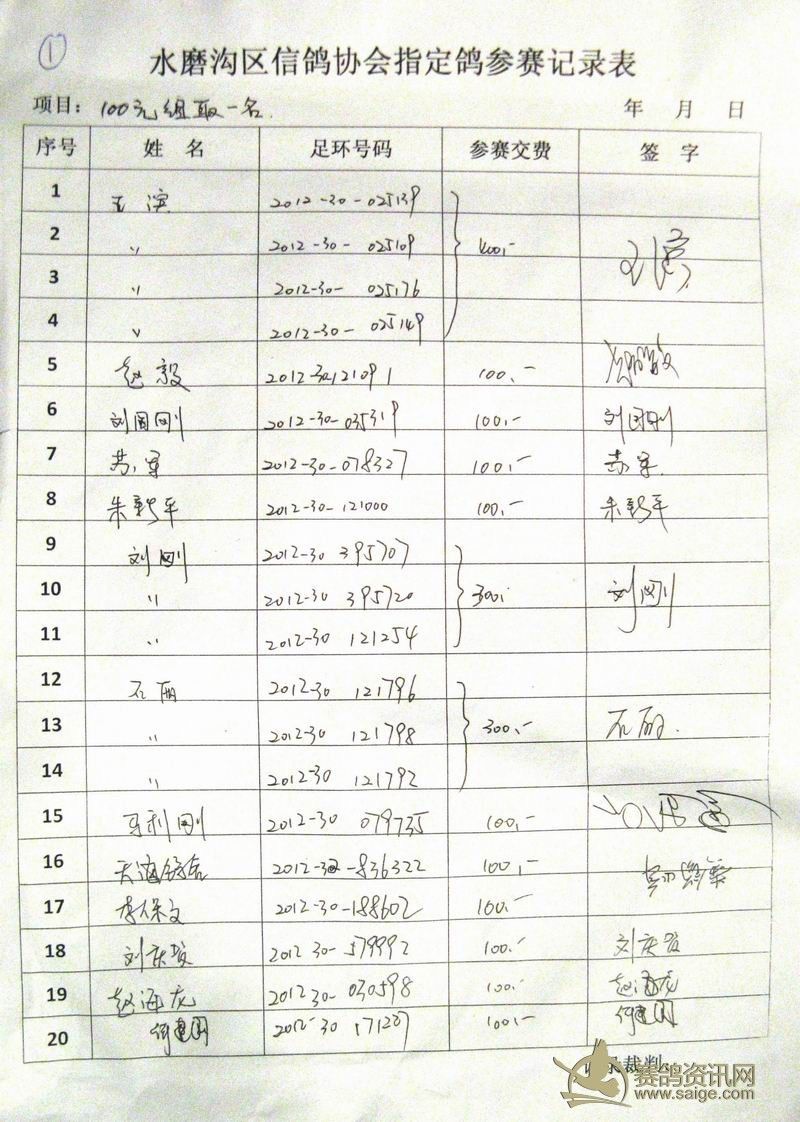 ①
水磨沟区信鸽协会指定鸽参赛记录表
项目: 100元组取一名. 年 月 日
序号 姓 名 足环号码 参赛交费 签 字
1 王滨 2012-30-025139
2 〃 2012-30-025109 400,-
3 〃 2012-30-025176
4 〃 2012-30-025149
5 赵毅 2012-30121091 100.-
6 刘国刚 2012-30-035319 100,- 刘国刚
7 苏军 2012-30-078327 100,- 苏军
8 朱新平 2012-30-121000 100,- 朱新平
9 刘刚 2012-30 395707
10 〃 2012-30 395720 300, 刘刚
11 〃 2012-30 121254
12 石丽 2012-30 121796
13 〃 2012-30 121798 300.- 石丽.
14 〃 2012-30 121792
15 马利刚 2012-30 079735 100,-
16 2012-30-836322 100,-
17 李保文 2012-30-188602 100.-
18 刘庆 2012-30-579992 100.- 刘庆
19 赵海龙 2012 30-030598 100.- 赵海龙
20 何建国 2012-30 171287 100.- 何建国
录裁判
赛鸽资讯网
www.saige.com